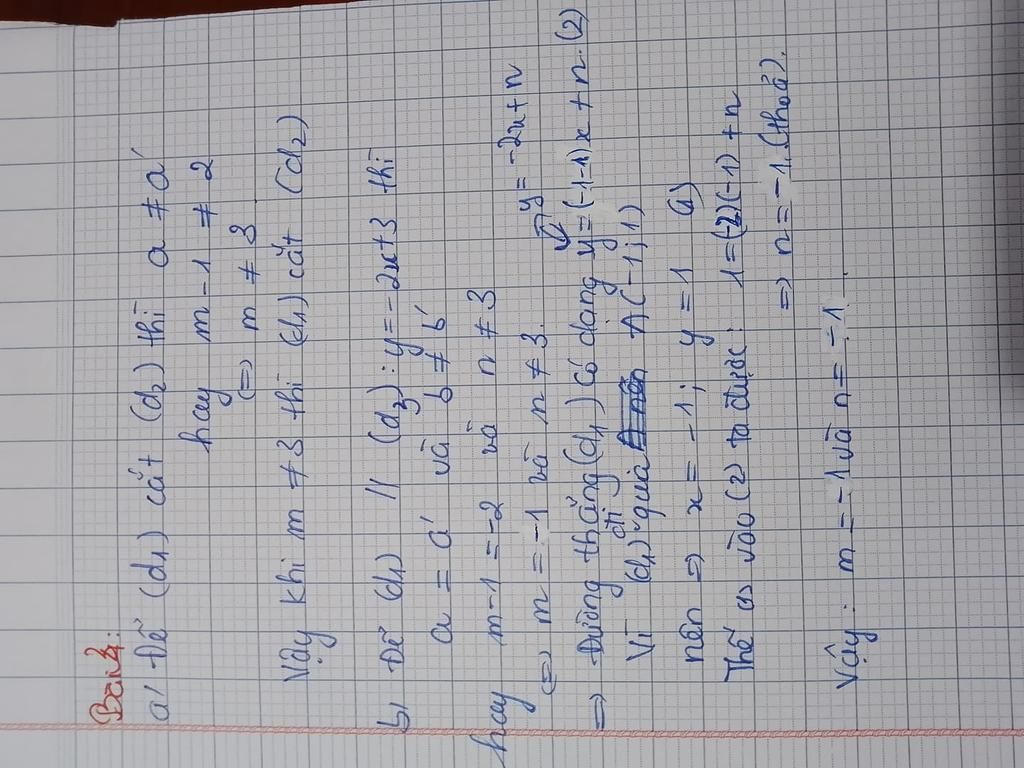 Bài 4:
a/ Để (d1) cắt (d2) thì a ≠ a'
hay m-1 ≠ 2
<=> m ≠ 3
Vậy khi m ≠ 3 thì (d1) cắt (d2)
b, Để (d1) // (d3): y = -2x+3 thì
a = a' và b ≠ b'
hay m-1 = -2 và n ≠ 3
<=> m = -1 và n ≠ 3. y = -2x+n
=> Đường thẳng (d1) có dạng y = (-1-1)x + n. (2)
Vì (d1) đi qua A(-1;1)
nên => x = -1; y = 1 (1)
Thế (1) vào (2) ta được: 1 = (-2)(-1) + n
=> n = -1. (thoả).
Vậy: m = -1 và n = -1.